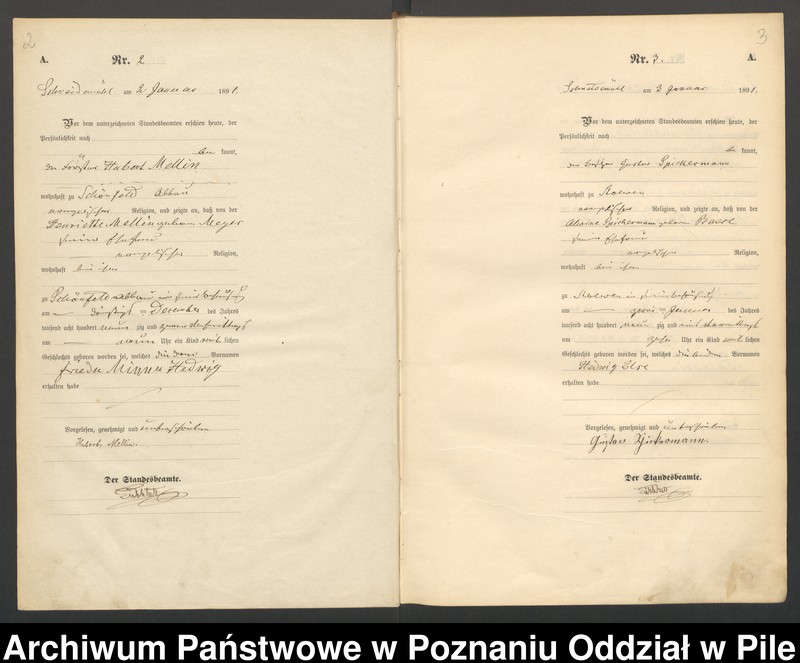 2
A. Nr. 2
Schneidemühl am 2 Januar 1891.
Vor dem unterzeichneten Standesbeamten erschien heute, der
Persönlichkeit nach
be kannt,
der Förster Hubert Mellin
wohnhaft zu Schönfeld Abbau
evangelischer Religion, und zeigte an, daß von der
Henriette Mellin geboren Meyer
seiner Ehefrau
evangelischer Religion,
wohnhaft bei ihm
zu Schönfeld Abbau in seiner Behausung
am dreißigsten December des Jahres
tausend acht hundert neun zig und
um neun Uhr ein Kind weib lichen
Geschlechts geboren worden sei, welches die drei Vornamen
Frieda Minna Hedwig
erhalten habe
Vorgelesen, genehmigt und unterschrieben
Hubert Mellin.
Der Standesbeamte.
3
Nr. 3. A.
Schneidemühl am 3 Januar 1891.
Vor dem unterzeichneten Standesbeamten erschien heute, der
Persönlichkeit nach
be kannt,
der Gustav Spickermann
wohnhaft zu Stöwen
evangelischer Religion, und zeigte an, daß von der
Spickermann geboren
seiner Ehefrau
evangelischer Religion,
wohnhaft bei ihm
zu Stöwen in seiner Behausung
am zwei Januar des Jahres
tausend acht hundert neun zig und ein
um Uhr ein Kind weib lichen
Geschlechts geboren worden sei, welches die beiden Vornamen
Hedwig Else
erhalten habe
Vorgelesen, genehmigt und unterschrieben
Gustav Spickermann
Der Standesbeamte.
Archiwum Państwowe w Poznaniu Oddział w Pile